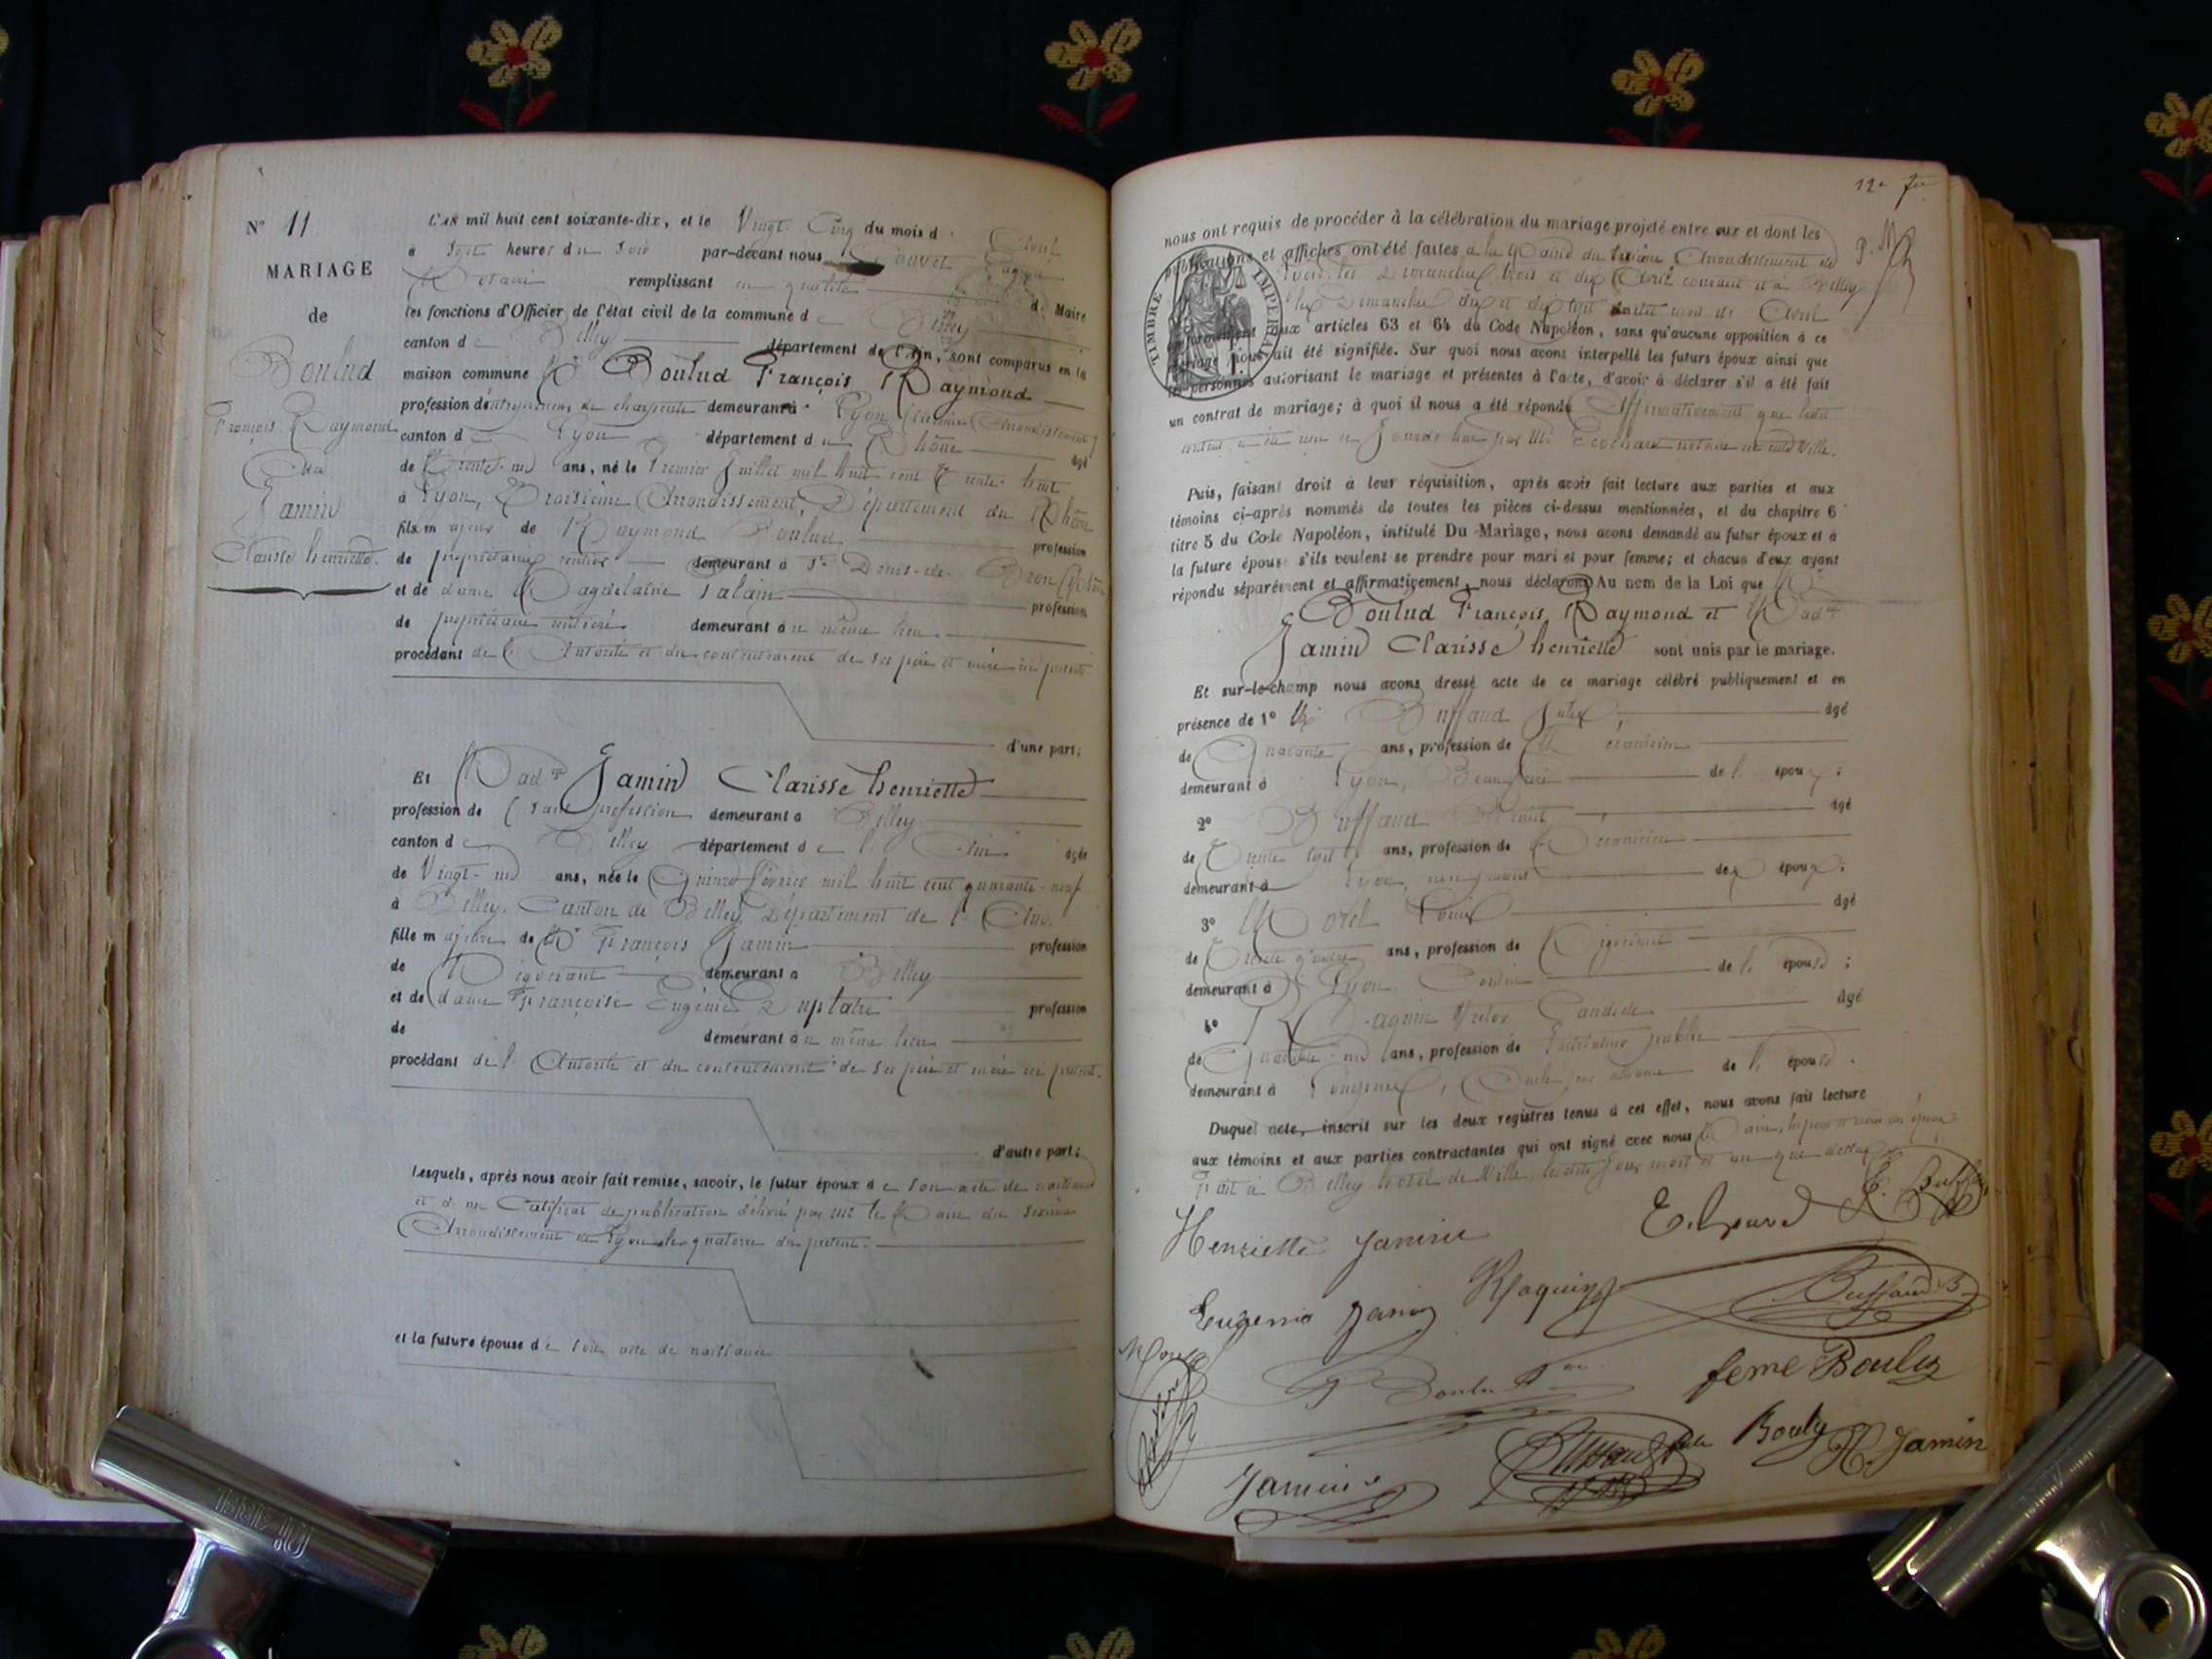 N° 11
MARIAGE
de
Boulud
François Raymond
Jamin
Clarisse henriette.
L'AN mil huit cent soixante-dix, et le Vingt-Cinq du mois d Avril
a Sept heures du Soir par-devant nous
Notaire remplissant en qualité de Maire
les fonctions d'Officier de l'état civil de la commune de Belley
canton de Belley département de l'Ain, sont comparus en la
maison commune Mr Boulud François Raymond
profession d'entrepreneur de charpente demeurant à Lyon Arrondissement
canton de Lyon département du Rhône âgé
de Trente-un ans, né le Premier Juillet mil huit cent Trente-huit
à Lyon, Troisième Arrondissement, Département du Rhône
fils majeur de Raymond Boulud profession
de propriétaire rentier demeurant à St Denis-de-Bron
et de dame Magdelaine Palain profession
de propriétaire rentière demeurant au même lieu
procédant de l'Autorité et du consentement de ses père et mère ici présents
d'une part;
Et Madlle Jamin Clarisse henriette
profession de sans profession demeurant à Belley
canton de Belley département de l'Ain âgée
de Vingt-un ans, née le Quinze Février mil huit cent quarante-neuf
à Belley, Canton de Belley Département de l'Ain.
fille majeure de Mr François Jamin profession
de Négociant demeurant à Belley
et de dame Françoise Eugénie Duplatre profession
de demeurant au même lieu
procédant de l'Autorité et du consentement de ses père et mère ici présents.
d'autre part;
Lesquels, après nous avoir fait remise, savoir, le futur époux de son acte de naissance
et d'un Certificat de publication délivré par Mr le Maire du Sixième
Arrondissement de Lyon le quatorze du présent.
et la future épouse de son acte de naissance
12e
nous ont requis de procéder à la célébration du mariage projeté entre eux et dont les
publications et affiches ont été faites à la Mairie du Sixième Arrondissement de
Lyon les Dimanches trois et dix Avril courant et à Belley
les Dimanches dix et dix sept dudit mois de Avril
TIMBRE IMPERIAL
conformément aux articles 63 et 64 du Code Napoléon, sans qu'aucune opposition à ce
mariage nous ait été signifiée. Sur quoi nous avons interpellé les futurs époux ainsi que
les personnes autorisant le mariage et présentes à l'acte, d'avoir à déclarer s'il a été fait
un contrat de mariage; à quoi il nous a été répondu Affirmativement que leur
contrat a été reçu ce Jourd'hui par Mr notaire en cette Ville.
Puis, faisant droit à leur réquisition, après avoir fait lecture aux parties et aux
témoins ci-après nommés de toutes les pièces ci-dessus mentionnées, et du chapitre 6
titre 5 du Code Napoléon, intitulé Du Mariage, nous avons demandé au futur époux et à
la future épouse s'ils veulent se prendre pour mari et pour femme; et chacun d'eux ayant
répondu séparément et affirmativement, nous déclarons Au nom de la Loi que Mr
Boulud François Raymond et Madlle
Jamin Clarisse henriette sont unis par le mariage.
Et sur-le-champ nous avons dressé acte de ce mariage célébré publiquement et en
présence de 1° Mr Buffaud Jules âgé
de Quarante ans, profession de Mécanicien
demeurant à Lyon, Beau frère de l'époux;
2° Buffaud Benoit âgé
de Trente sept ans, profession de Mécanicien
demeurant à Lyon, de l'époux;
3° Morel Louis âgé
de Trente quatre ans, profession de Négociant
demeurant à Lyon, Cousin de l'épouse;
4° Raquin Victor Candide âgé
de Quarante-un ans, profession de
demeurant à Oncle par alliance de l'épouse.
Duquel acte, inscrit sur les deux registres tenus à cet effet, nous avons fait lecture
aux témoins et aux parties contractantes qui ont signé avec nous Maire, les père et mère des époux
Fait à Belley hotel de Ville, lesdits Jour, mois et an que dessus
Henriette Jamin
Eugenie Jamin
Raquin
Buffaud B
Morel
feme Boulud
Buffaud Jules
Jamin
H. Jamin